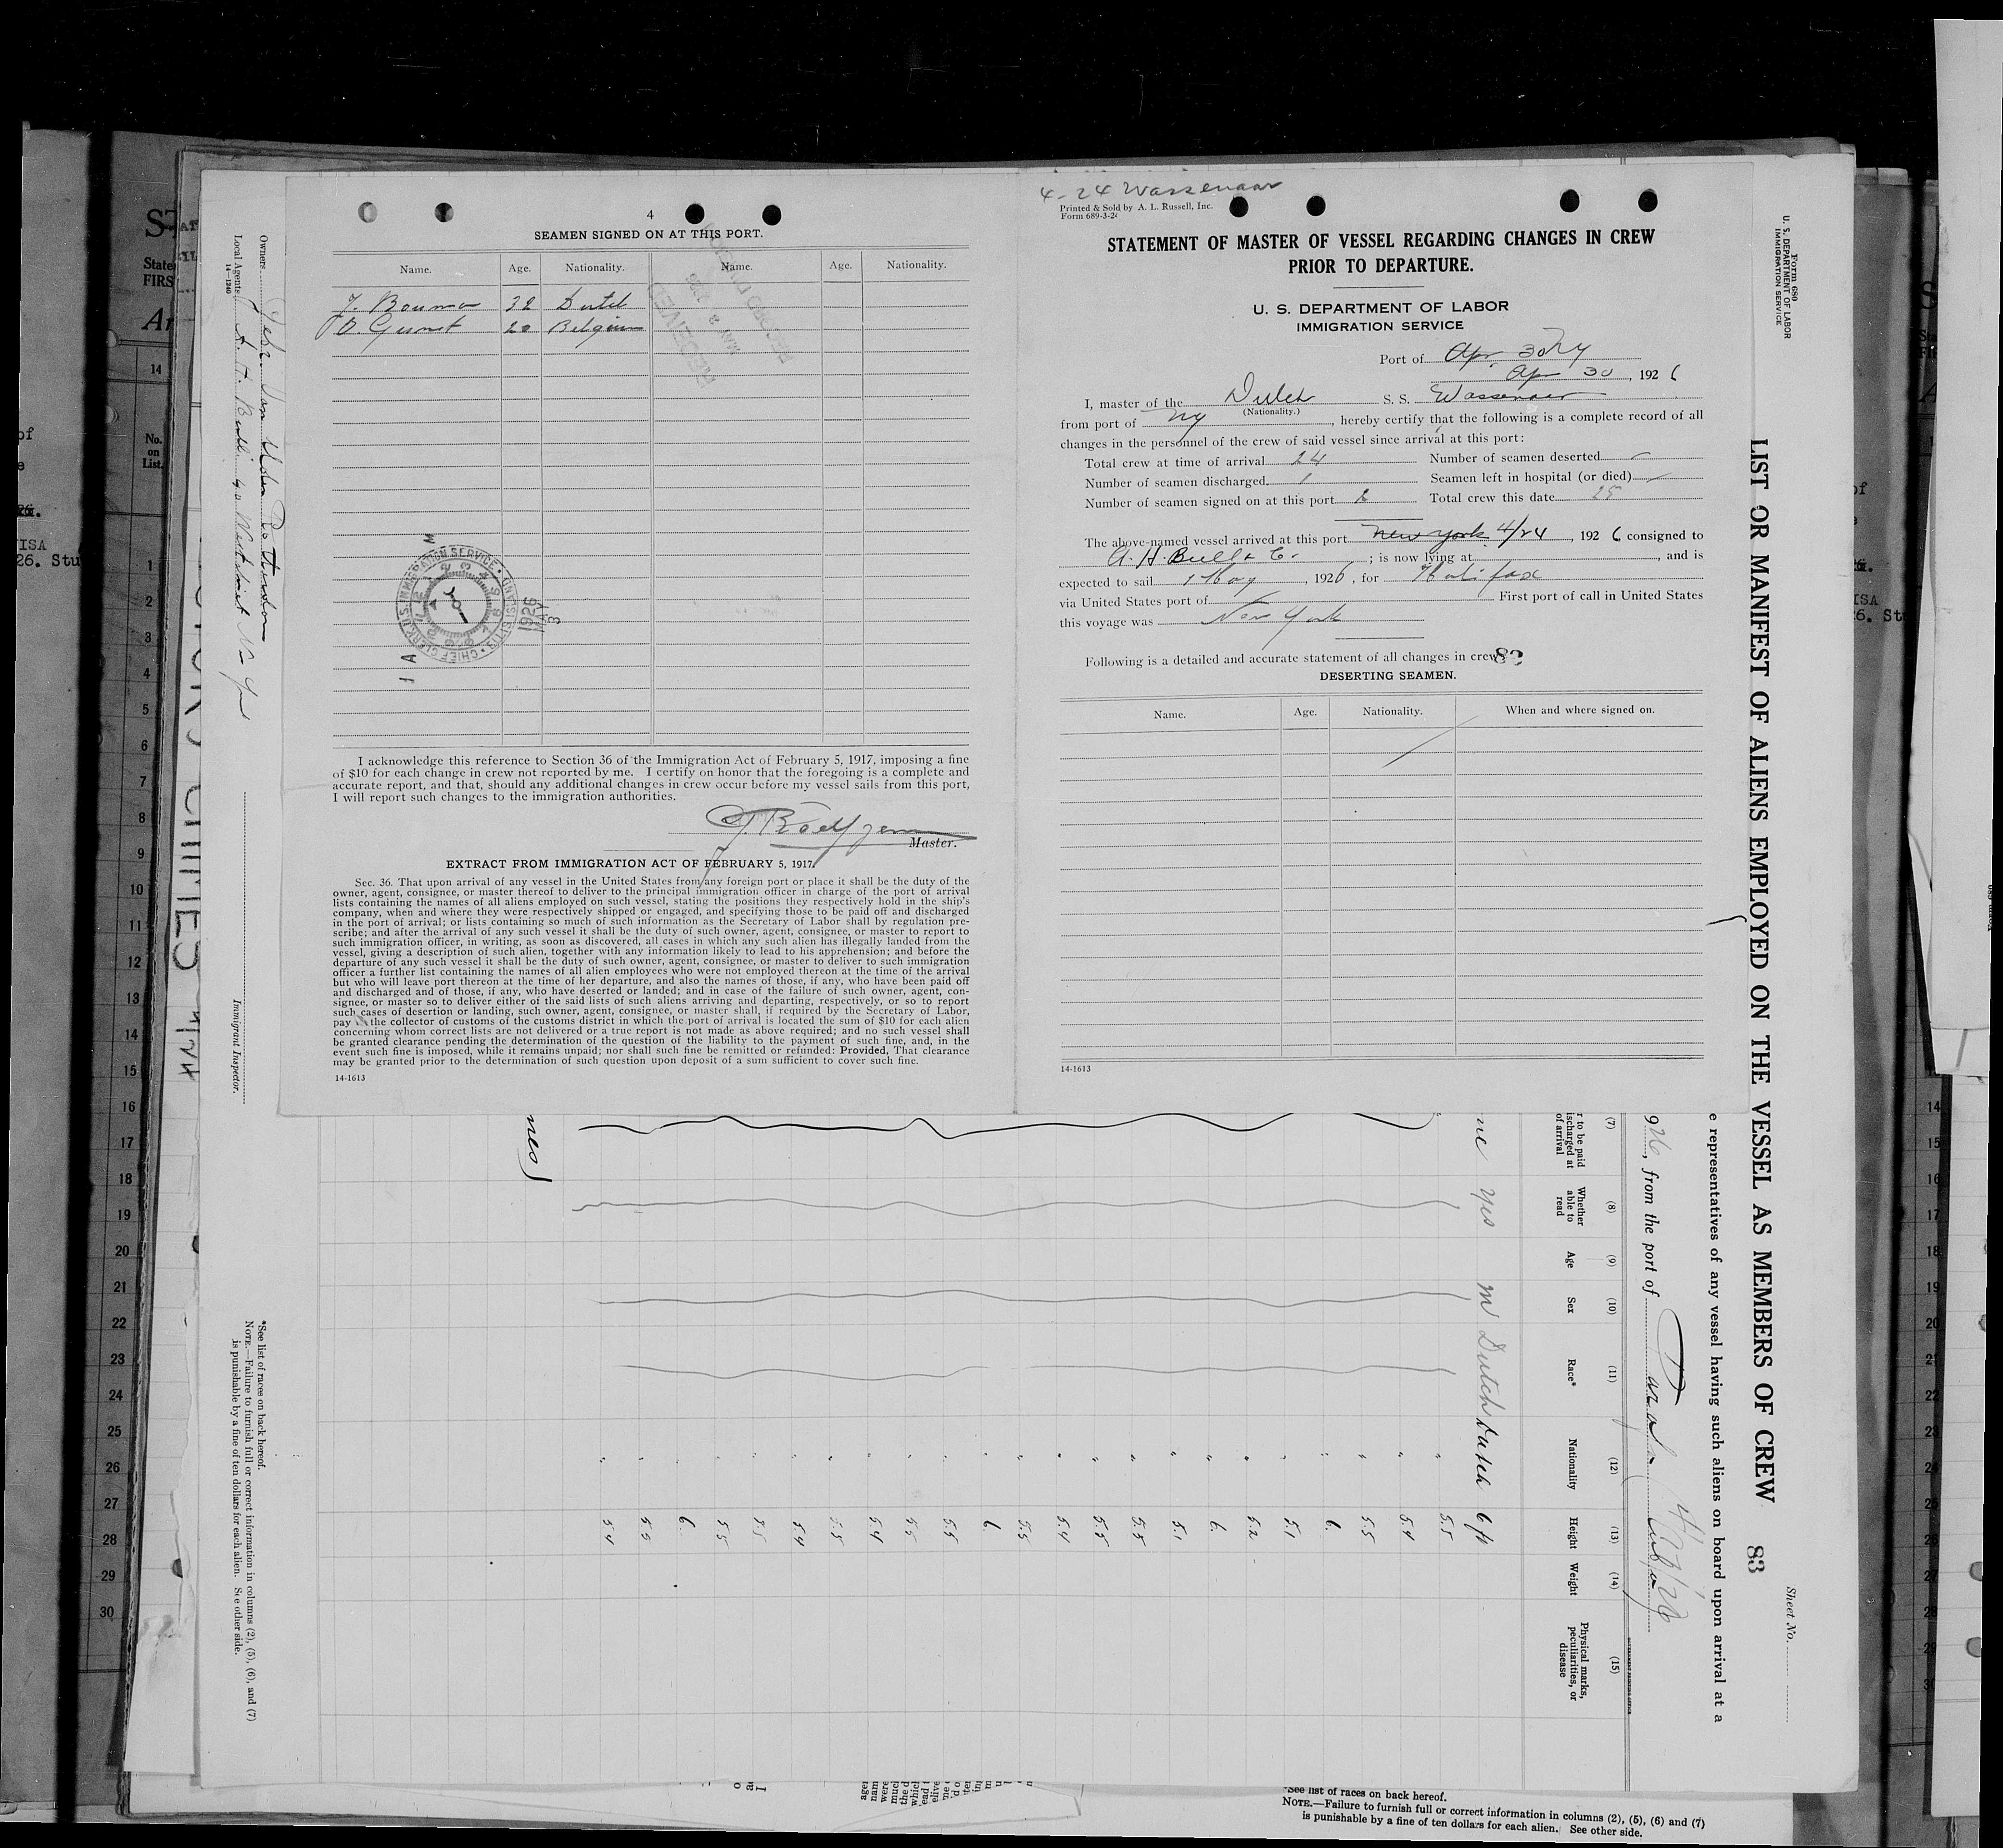 4
SEAMEN SIGNED ON AT THIS PORT.
Name. Age. Nationality. Name. Age. Nationality.
Bouma 32 Dutch
20 Belgium
RECEIVED
1926
I acknowledge this reference to Section 36 of the Immigration Act of February 5, 1917, imposing a fine
of $10 for each change in crew not reported by me. I certify on honor that the foregoing is a complete and
accurate report, and that, should any additional changes in crew occur before my vessel sails from this port,
I will report such changes to the immigration authorities.
Master.
EXTRACT FROM IMMIGRATION ACT OF FEBRUARY 5, 1917.
Sec. 36. That upon arrival of any vessel in the United States from any foreign port or place it shall be the duty of the
owner, agent, consignee, or master thereof to deliver to the principal immigration officer in charge of the port of arrival
lists containing the names of all aliens employed on such vessel, stating the positions they respectively hold in the ship's
company, when and where they were respectively shipped or engaged, and specifying those to be paid off and discharged
in the port of arrival; or lists containing so much of such information as the Secretary of Labor shall by regulation pre-
scribe; and after the arrival of any such vessel it shall be the duty of such owner, agent, consignee, or master to report to
such immigration officer, in writing, as soon as discovered, all cases in which any such alien has illegally landed from the
vessel, giving a description of such alien, together with any information likely to lead to his apprehension; and before the
departure of any such vessel it shall be the duty of such owner, agent, consignee, or master to deliver to such immigration
officer a further list containing the names of all alien employees who were not employed thereon at the time of the arrival
but who will leave port thereon at the time of her departure, and also the names of those, if any, who have been paid off
and discharged and of those, if any, who have deserted or landed; and in case of the failure of such owner, agent, con-
signee, or master so to deliver either of the said lists of such aliens arriving and departing, respectively, or so to report
such cases of desertion or landing, such owner, agent, consignee, or master shall, if required by the Secretary of Labor,
pay to the collector of customs of the customs district in which the port of arrival is located the sum of $10 for each alien
concerning whom correct lists are not delivered or a true report is not made as above required; and no such vessel shall
be granted clearance pending the determination of the question of the liability to the payment of such fine, and, in the
event such fine is imposed, while it remains unpaid; nor shall such fine be remitted or refunded: Provided, That clearance
may be granted prior to the determination of such question upon deposit of a sum sufficient to cover such fine.
14-1613
4-24 Wassenaar
Printed & Sold by A. L. Russell, Inc.
Form 689-3-26
STATEMENT OF MASTER OF VESSEL REGARDING CHANGES IN CREW
PRIOR TO DEPARTURE.
U. S. DEPARTMENT OF LABOR
IMMIGRATION SERVICE
Port of Apr. 30 NY
Apr 30, 1926
I, master of the Dutch S. S. Wassenaar
(Nationality.)
from port of NY, hereby certify that the following is a complete record of all
changes in the personnel of the crew of said vessel since arrival at this port:
Total crew at time of arrival 24 Number of seamen deserted
Number of seamen discharged 1 Seamen left in hospital (or died)
Number of seamen signed on at this port 2 Total crew this date 25
The above-named vessel arrived at this port New York 4/24, 1926 consigned to
A. H. Bull & Co. ; is now lying at , and is
expected to sail 1 May, 1926, for Halifax
via United States port of First port of call in United States
this voyage was New York
Following is a detailed and accurate statement of all changes in crew:
83
DESERTING SEAMEN.
Name. Age. Nationality. When and where signed on.
14-1613
Form 680
U. S. DEPARTMENT OF LABOR
IMMIGRATION SERVICE
LIST OR MANIFEST OF ALIENS EMPLOYED ON THE VESSEL AS MEMBERS OF CREW 83
Sheet No.
e representatives of any vessel having such aliens on board upon arrival at a
926, from the port of
(7) (8) (9) (10) (11) (12) (13) (14) (15)
r to be paid
ischarged at
of arrival
Whether
able to
read
Age
Sex
Race*
Nationality
Height
Weight
Physical marks,
peculiarities, or
disease
yes m Dutch Dutch
Owners
Local Agents
14-1240
Immigrant Inspector.
*See list of races on back hereof.
NOTE.—Failure to furnish full or correct information in columns (2), (5), (6), and (7)
is punishable by a fine of ten dollars for each alien. See other side.
No.
on
List.
1
2
3
4
5
6
7
8
9
10
11
12
13
14
15
16
17
18
19
20
21
22
23
24
25
26
27
28
29
30
*See list of races on back hereof.
NOTE.—Failure to furnish full or correct information in columns (2), (5), (6) and (7)
is punishable by a fine of ten dollars for each alien. See other side.